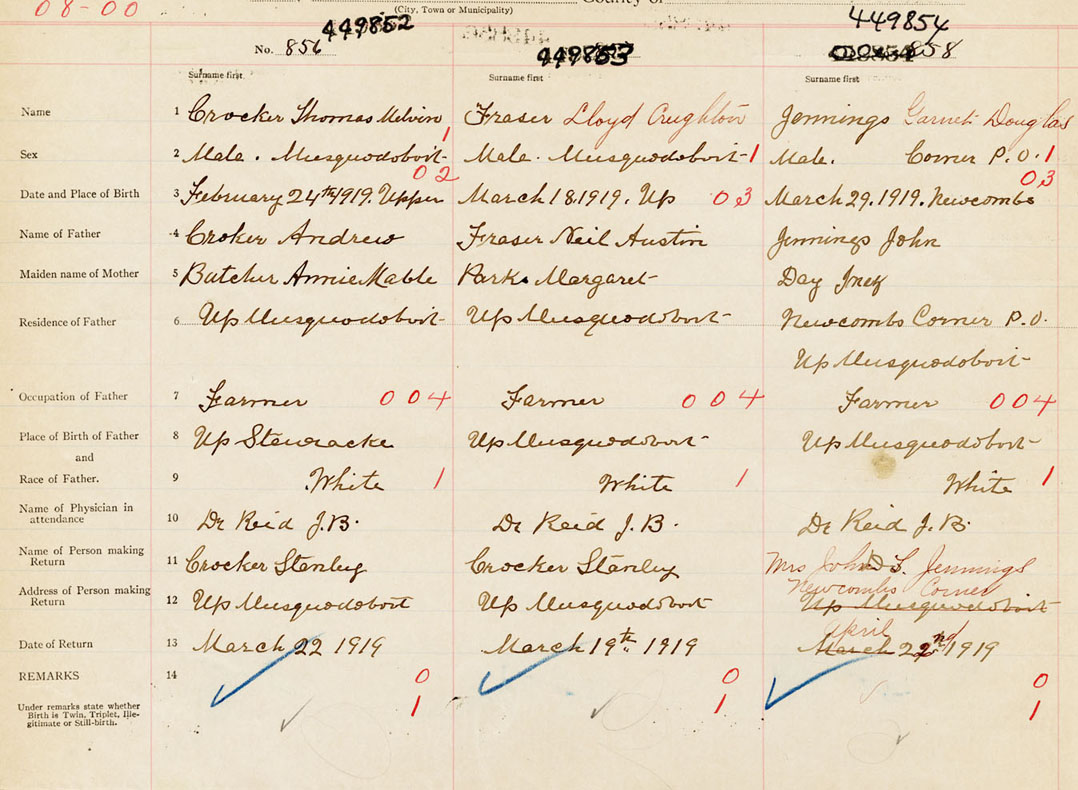 08-00
(City, Town or Municipality) County of
No. 856 449852 449853 449854 858
Surname first. Surname first Surname first
Name 1 Crocker Thomas Melvin Fraser Lloyd Creighton Jennings Garnet Douglas
Sex 2 Male. Musquodoboit 1 Male. Musquodoboit 1 Male. Corner P.O. 1
02 03 03
Date and Place of Birth 3 February 24th 1919. Upper March 18.1919. Up March 29.1919. Newcombs
Name of Father 4 Croker Andrew Fraser Neil Austin Jennings John
Maiden name of Mother 5 Butcher Annie Mable Parks Margaret Day Inez
Residence of Father 6 Up Musquodoboit Up Musquodoboit Newcombs Corner P.O.
Up Musquodoboit
Occupation of Father 7 Farmer 004 Farmer 004 Farmer 004
Place of Birth of Father 8 Up Stewiacke Up Musquodoboit Up Musquodoboit
and
Race of Father. 9 White 1 White 1 White 1
Name of Physician in
attendance 10 Dr Reid J.B. Dr Reid J.B. Dr Reid J.B.
Name of Person making
Return 11 Crocker Stanley Crocker Stanley Mrs John S. Jennings
Newcombs Corner
Address of Person making
Return 12 Up Musquodoboit Up Musquodoboit Up Musquodoboit
April
Date of Return 13 March 22 1919 March 19th 1919 March 22nd 1919
REMARKS 14 0 0 0
Under remarks state whether
Birth is Twin, Triplet, Ille-
gitimate or Still-birth. 1 1 1